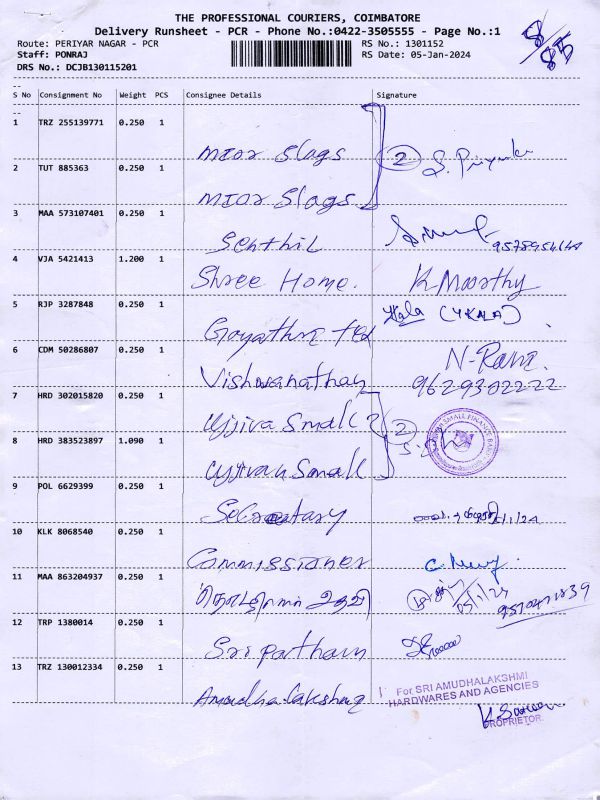 THE PROFESSIONAL COURIERS, COIMBATORE
Delivery Runsheet - PCR - Phone No.:0422-3505555 - Page No.:1
Route: PERIYAR NAGAR - PCR
RS No.: 1301152
8/85
Staff: PONRAJ
RS Date: 05-Jan-2024
DRS No.: DCJB130115201
S No Consignment No Weight PCS Consignee Details Signature
1 TRZ 255139771 0.250 1 Mior Slags
2 S. Priyanka
2 TUT 885363 0.250 1 Mior Slags
3 MAA 573107401 0.250 1 Senthil
4 VJA 5421413 1.200 1 Shree Home. K Moorthy
5 RJP 3287848 0.250 1 Gayathri Kala (Y KALA)
6 CDM 50286807 0.250 1 Vishwanathan N-Rani.
9629302222
7 HRD 302015820 0.250 1 Ujjiva Small
2
8 HRD 383523897 1.090 1 Ujjivan Small
SMALL FINANCE BANK
9 POL 6629399 0.250 1 Secretary 5/1/24
10 KLK 8068540 0.250 1 Commissioner
11 MAA 863204937 0.250 1 05/1/24
12 TRP 1380014 0.250 1 Sri partham
13 TRZ 130012334 0.250 1 Amudha lakshmi
For SRI AMUDHALAKSHMI
HARDWARES AND AGENCIES
PROPRIETOR.